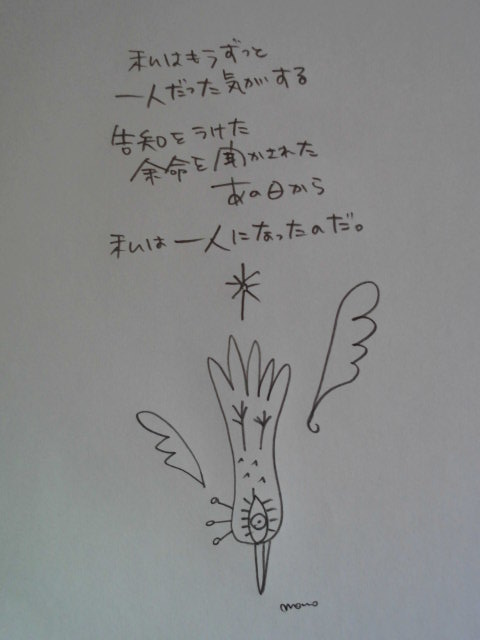 私はもうずっと
一人だった気がする
告知をうけた
余命を聞かされた
あの日から
私は一人になったのだ。
momo